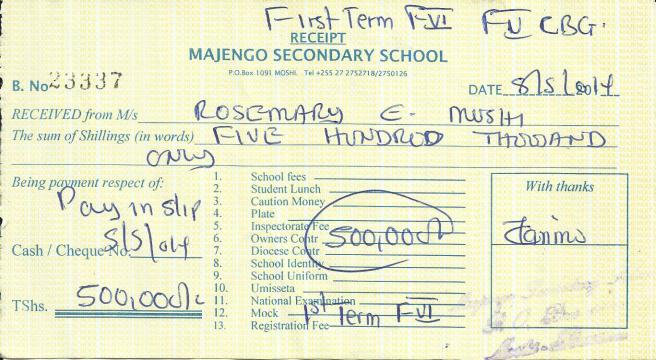 First Term F VI F V CBG.
RECEIPT
MAJENGO SECONDARY SCHOOL
P.O.Box 1091 MOSHI. Tel +255 27 2752718/2750126
B. No 23337
DATE 8/5/2014
RECEIVED from M/s ROSEMARY E. MUSHI
The sum of Shillings (in words) FIVE HUNDRED THOUSAND
ONLY
Being payment respect of:
Pay in slip
Cash / Cheque No. 8/5/014
TShs. 500,000/=
1. School fees
2. Student Lunch
3. Caution Money
4. Plate
5. Inspectorate Fee
6. Owners Contr 500,000/
7. Diocese Contr
8. School Identity
9. School Uniform
10. Umisseta
11. National Examination
12. Mock 1st Term F VI
13. Registration Fee
With thanks